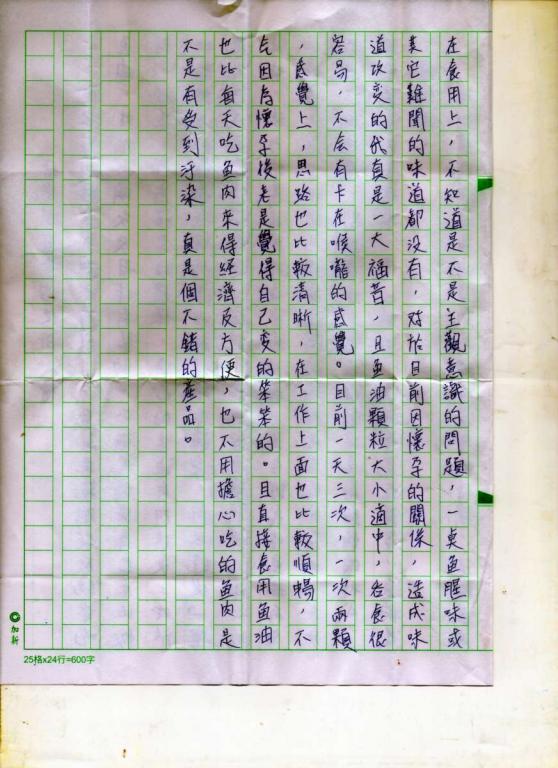 在食用上，不知道是不是主觀意識的問題，一點魚腥味或
其它難聞的味道都沒有，对於目前因懷孕的關係，造成味
道改变的我真是一大福音，且魚油顆粒大小適中，吞食很
容易，不会有卡在喉嚨的感覺。目前一天三次，一次兩顆
，感覺上，思路也比較清晰，在工作上面也比較順暢，不
会因為懷孕後老是覺得自己变的笨笨的。且直接食用魚油
也比每天吃魚肉來得經濟及方便，也不用擔心吃的魚肉是
不是有受到汙染，真是個不錯的產品。
加新
25格x24行=600字